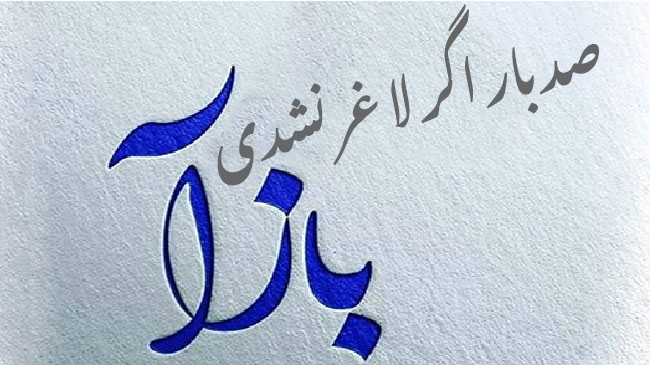 صد بار اگر لاغر نشدی
بازآ